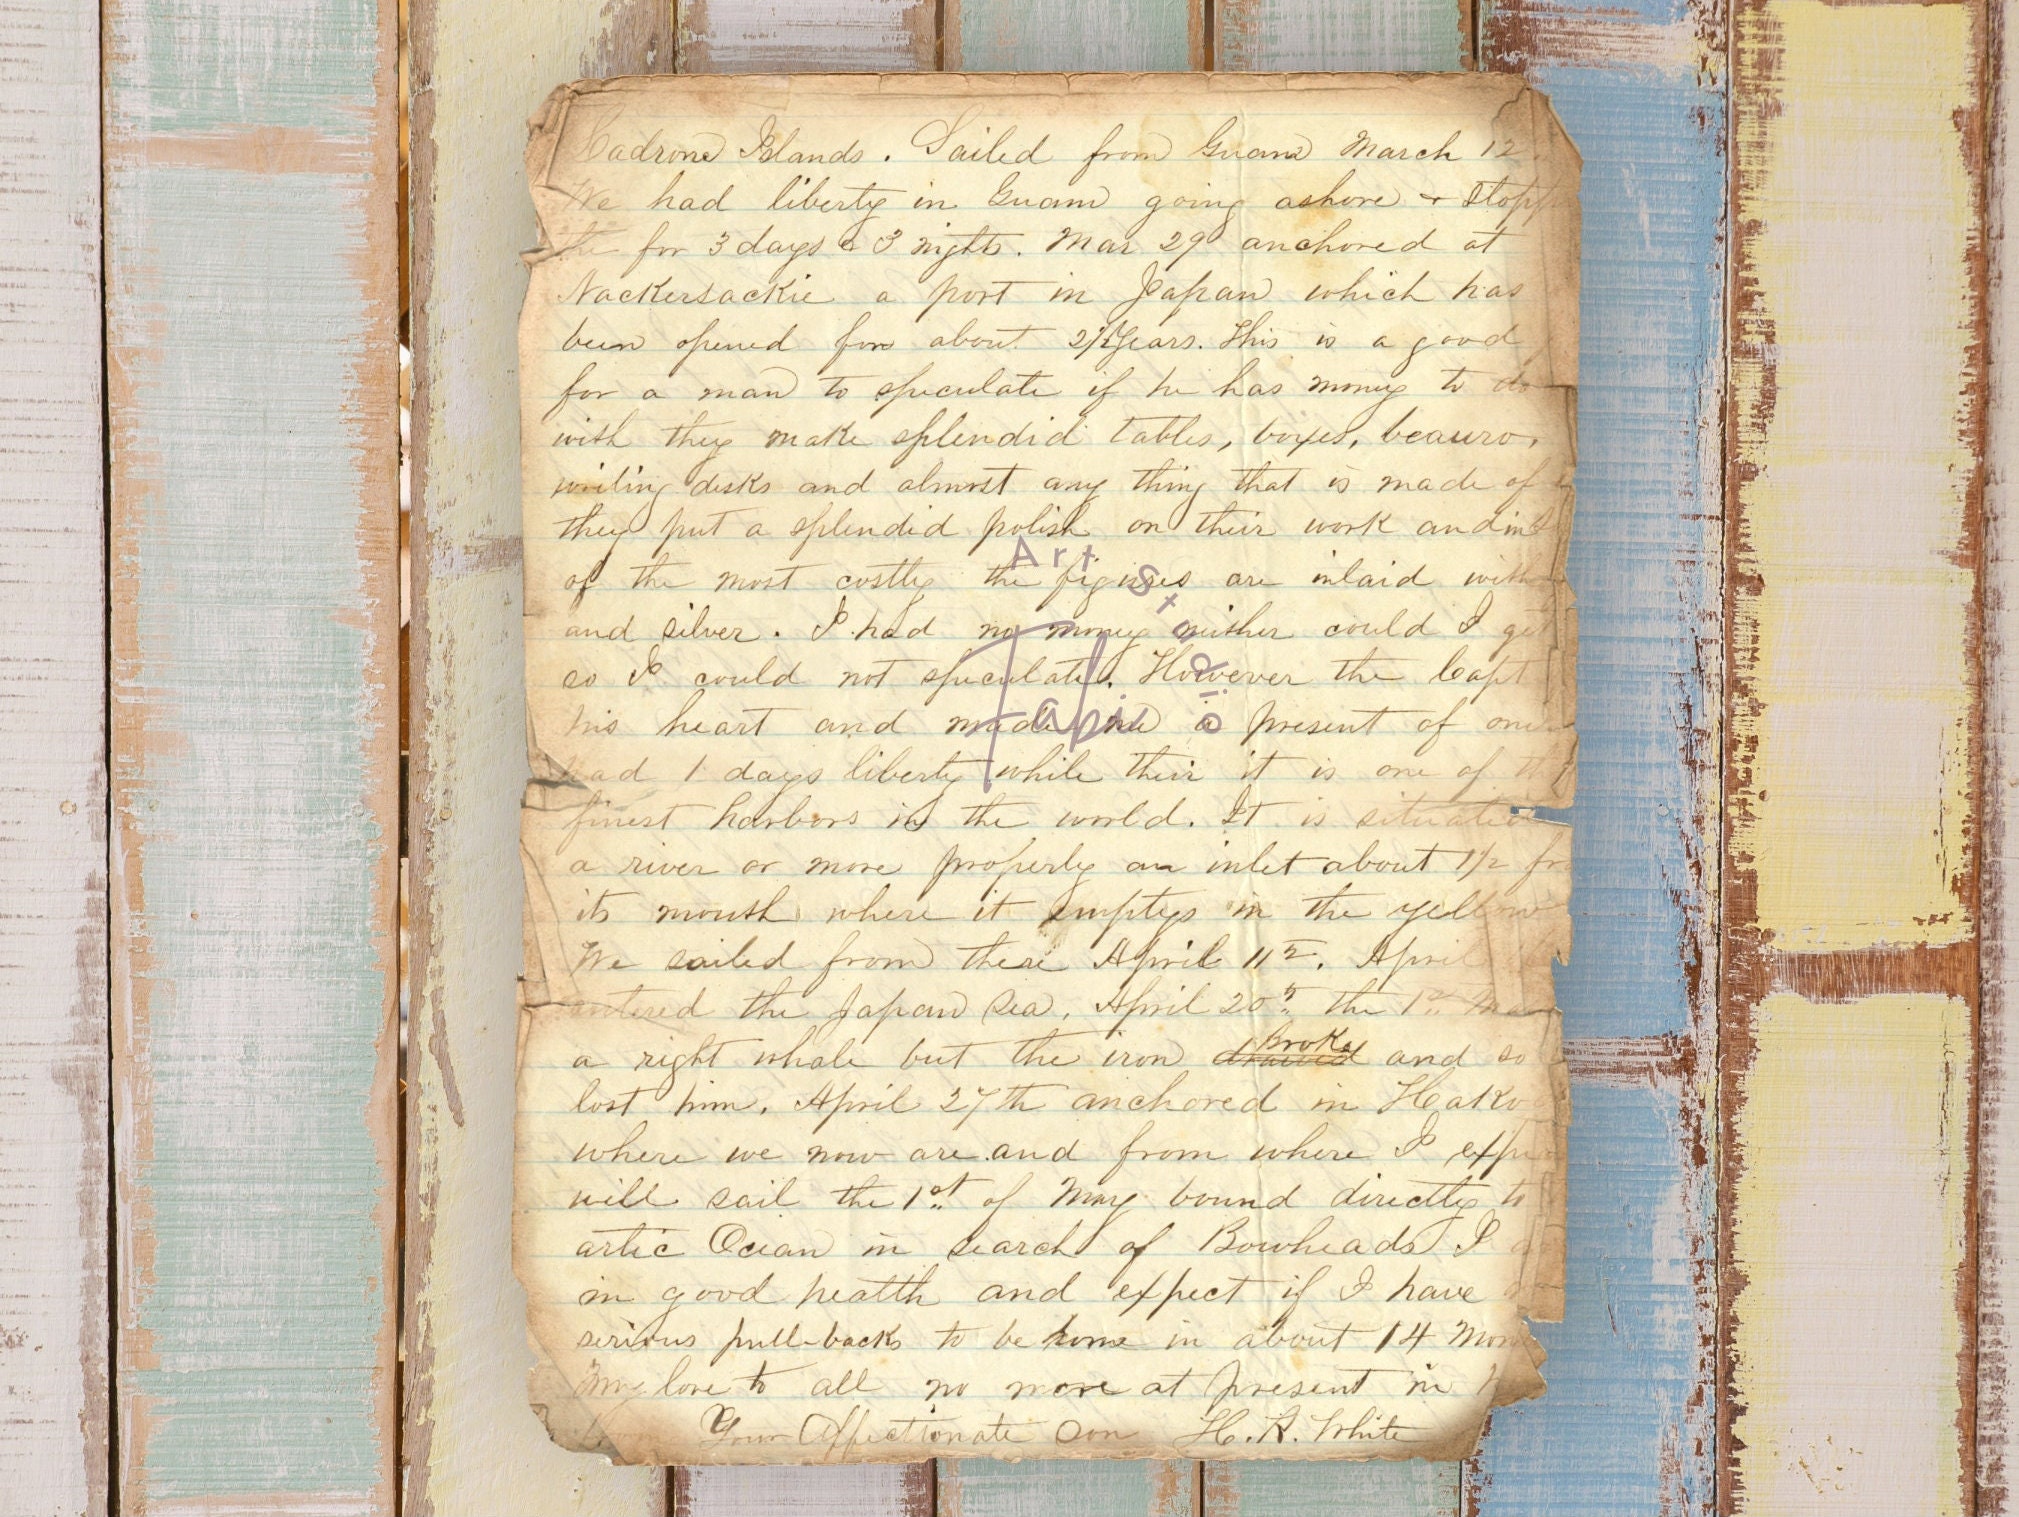 Ladrone Islands. Sailed from Guam March 12
We had liberty in Guam going ashore &
for 3 days & 3 nights. Mar 29 anchored at
Nackersackie a port in Japan which has
been opened for about 2 1/2 years. This is a good
for a man to speculate if he has money to do
with they make splendid tables, boxes, beauro,
writing desks and almost any thing that is made of
they put a splendid polish on their work and in
of the most costly the figures are inlaid with
and silver. I had no money neither could I get
so I could not speculate. However the Capt
his heart and made me a present of one
had 1 days liberty while their it is one of the
finest harbors in the world. It is situated
a river or more properly an inlet about 1 1/2
its mouth where it emptys in the yellow
We sailed from there April 11th. April
entered the Japan Sea. April 20th the 1st
a right whale but the iron broke and so
lost him. April 27th anchored in
where we now are and from where I
will sail the 1st of May bound directly to
artic Ocean in search of Bowheads I
in good health and expect if I have
serious pull-backs to be home in about 14
My love to all no more at present
Your Affectionate Son H. A. White
Art Studio